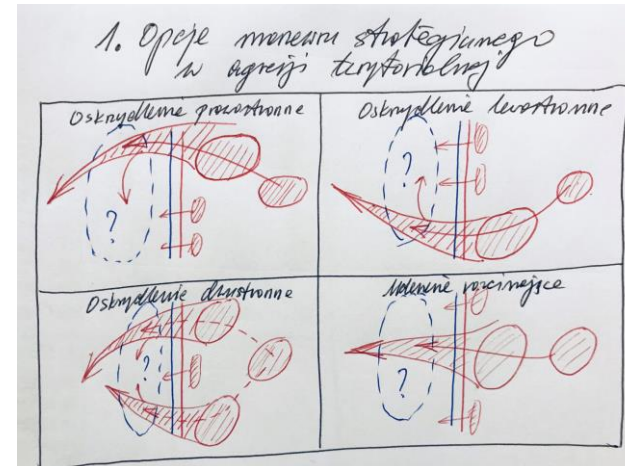 1. Opcje manewru strategicznego
w agresji terytorialnej
Oskrzydlenie prawostronne
Oskrzydlenie lewostronne
?
?
?
Oskrzydlenie dwustronne
Uderzenie rozcinające
?
?